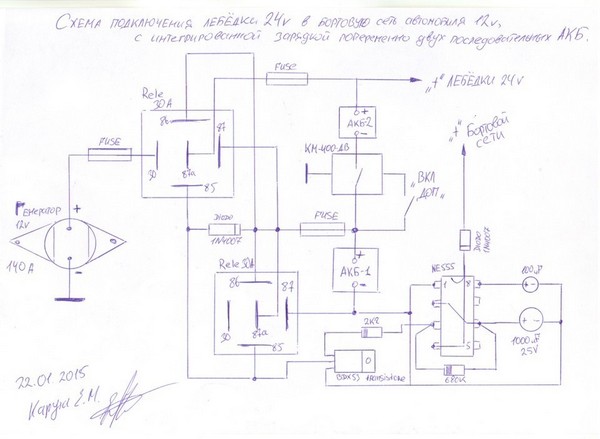 Схема подключения лебёдки 24v в бортовую сеть автомобиля 12v,
с интегрированной зарядкой попеременно двух последовательных АКБ.
FUSE
"+" ЛЕБЁДКИ 24v
Rele
30A
86
87
30
87a
85
АКБ-2
КМ-400-ДВ
"ВКЛ
ДОП"
"+" Бортовой
сети
FUSE
Генератор
12v
140A
Diezo
1N4007
FUSE
АКБ-1
Diezo
1N4007
Rele 30A
86
87
30
87a
85
NE555
1
8
5
100
1000
25V
2KΩ
680K
22.01.2015
Е.М.